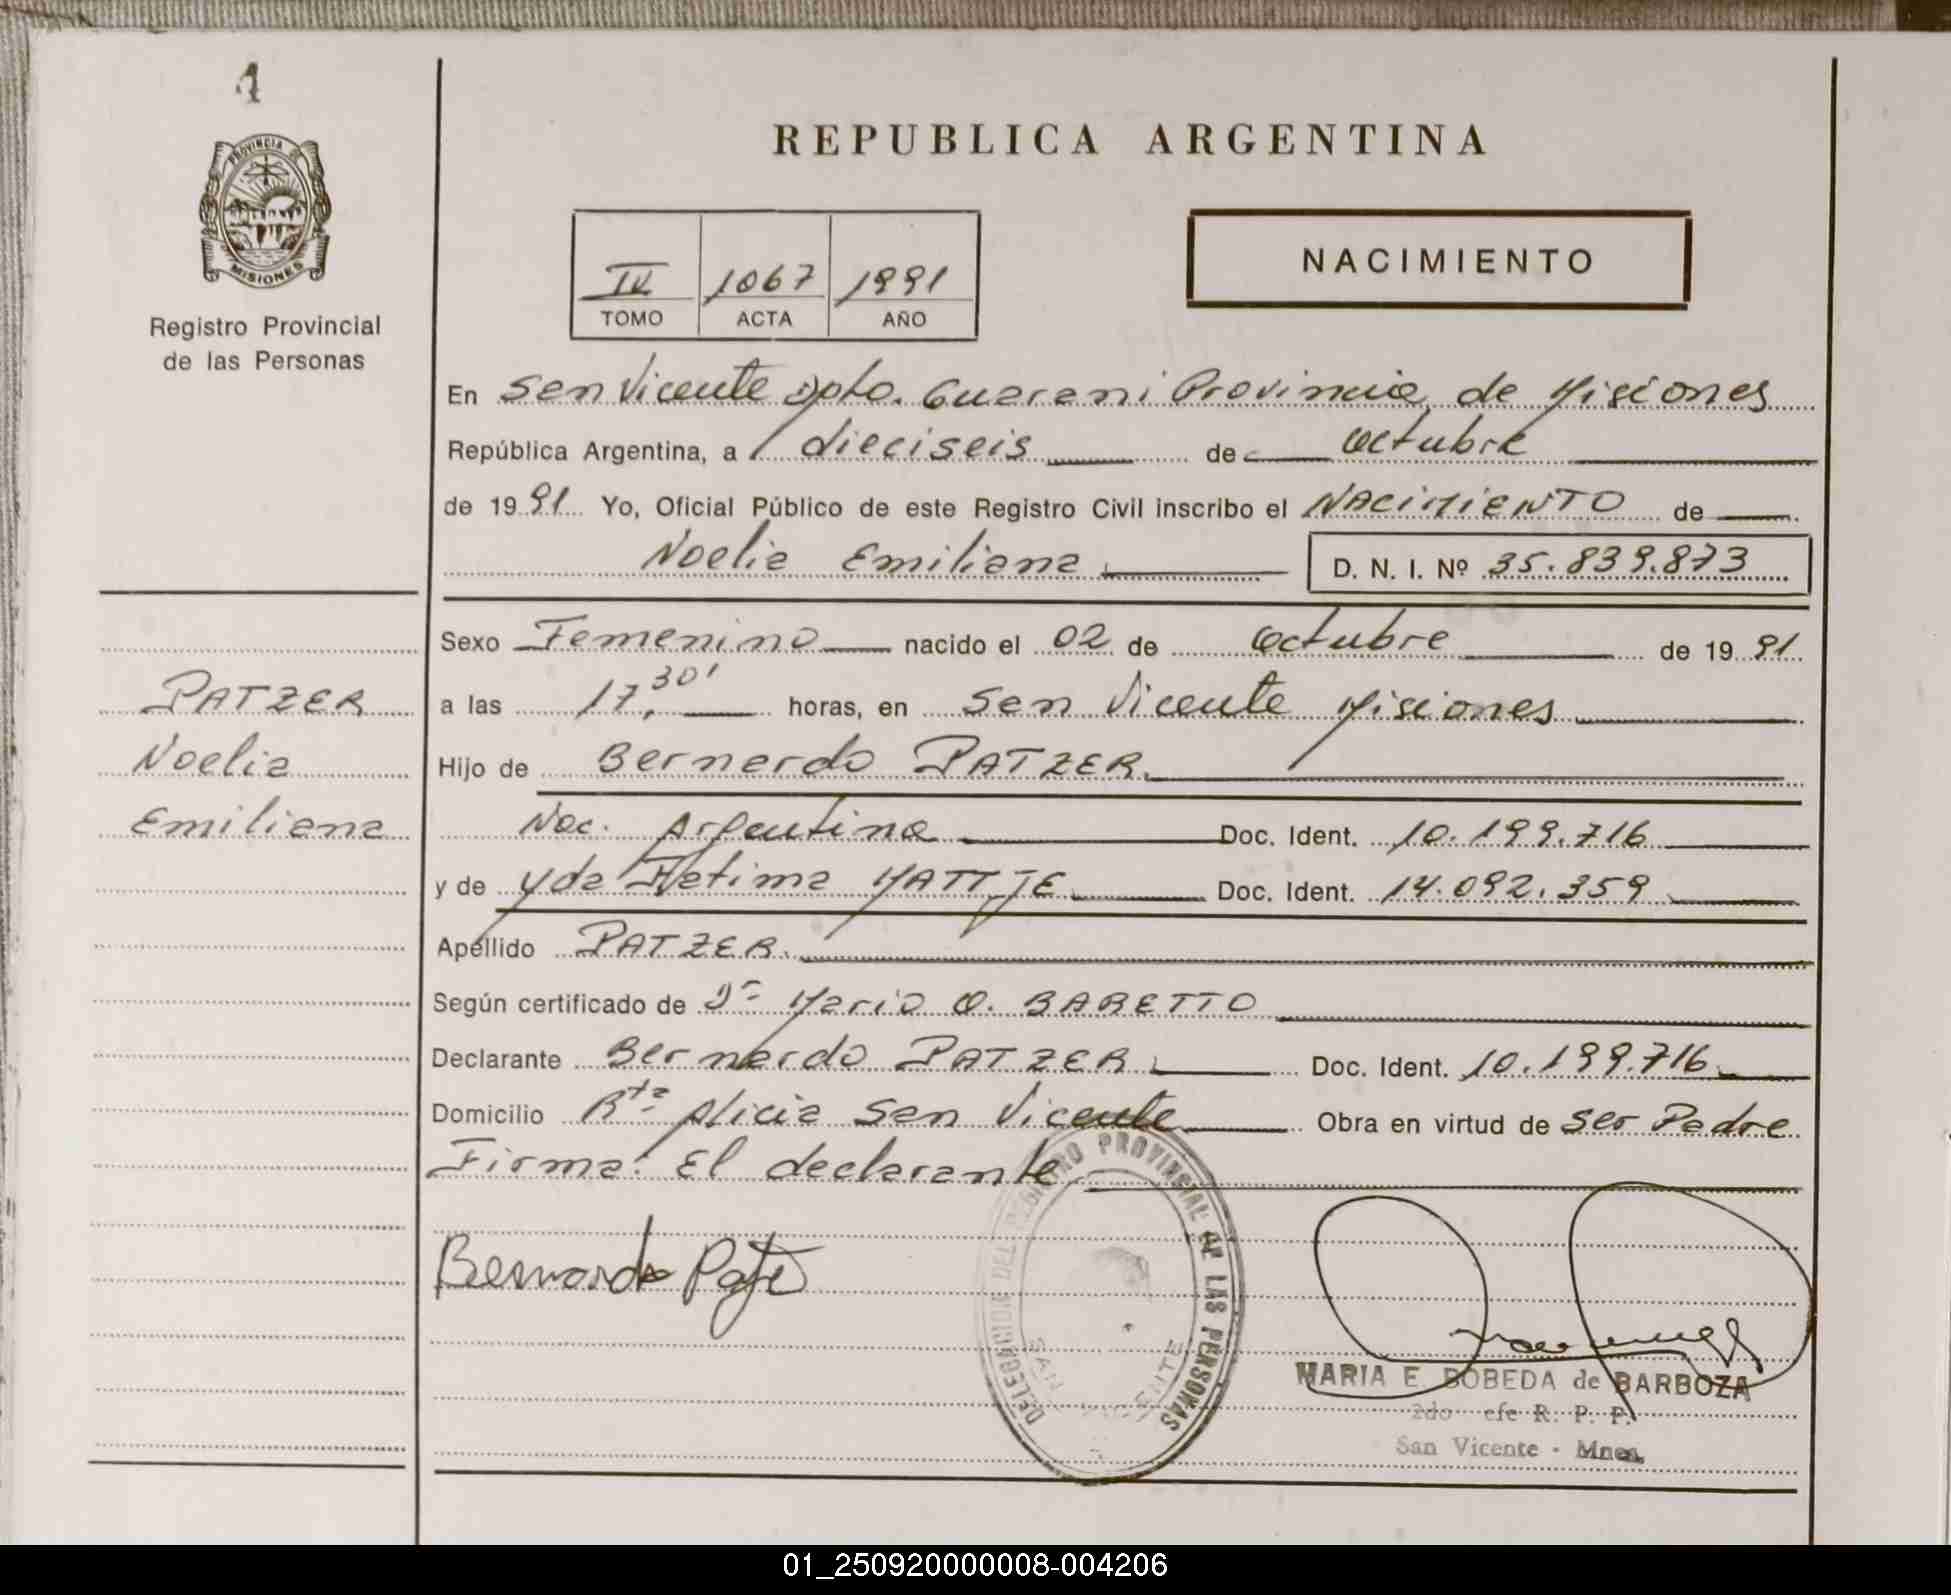 1
PROVINCIA DE
MISIONES
Registro Provincial
de las Personas
PATZER
Noelia
Emiliana
REPUBLICA ARGENTINA
IV 1067 1991
TOMO ACTA AÑO
NACIMIENTO
En San Vicente Dpto. Guarani Provincia de Misiones
República Argentina, a dieciseis de octubre
de 1991 Yo, Oficial Público de este Registro Civil inscribo el NACIMIENTO de
Noelia Emiliana D. N. I. Nº 35.839.873
Sexo Femenino nacido el 02 de octubre de 1991
a las 17,30' horas, en San Vicente Misiones
Hijo de Bernardo PATZER
Nac. Argentina Doc. Ident. 10.199.716
y de Yda Fatima MATTJE Doc. Ident. 14.092.359
Apellido PATZER
Según certificado de Dr Mario O. BARETTO
Declarante Bernardo PATZER Doc. Ident. 10.199.716
Domicilio Rta Alicia San Vicente Obra en virtud de ser Padre
Firma: El declarante
Bernardo
DELEGACION DEL REGISTRO PROVINCIAL DE LAS PERSONAS
SAN VICENTE
MARIA E BOBEDA de BARBOZA
2do efe R. P. P.
San Vicente - Mnes.
01_250920000008-004206